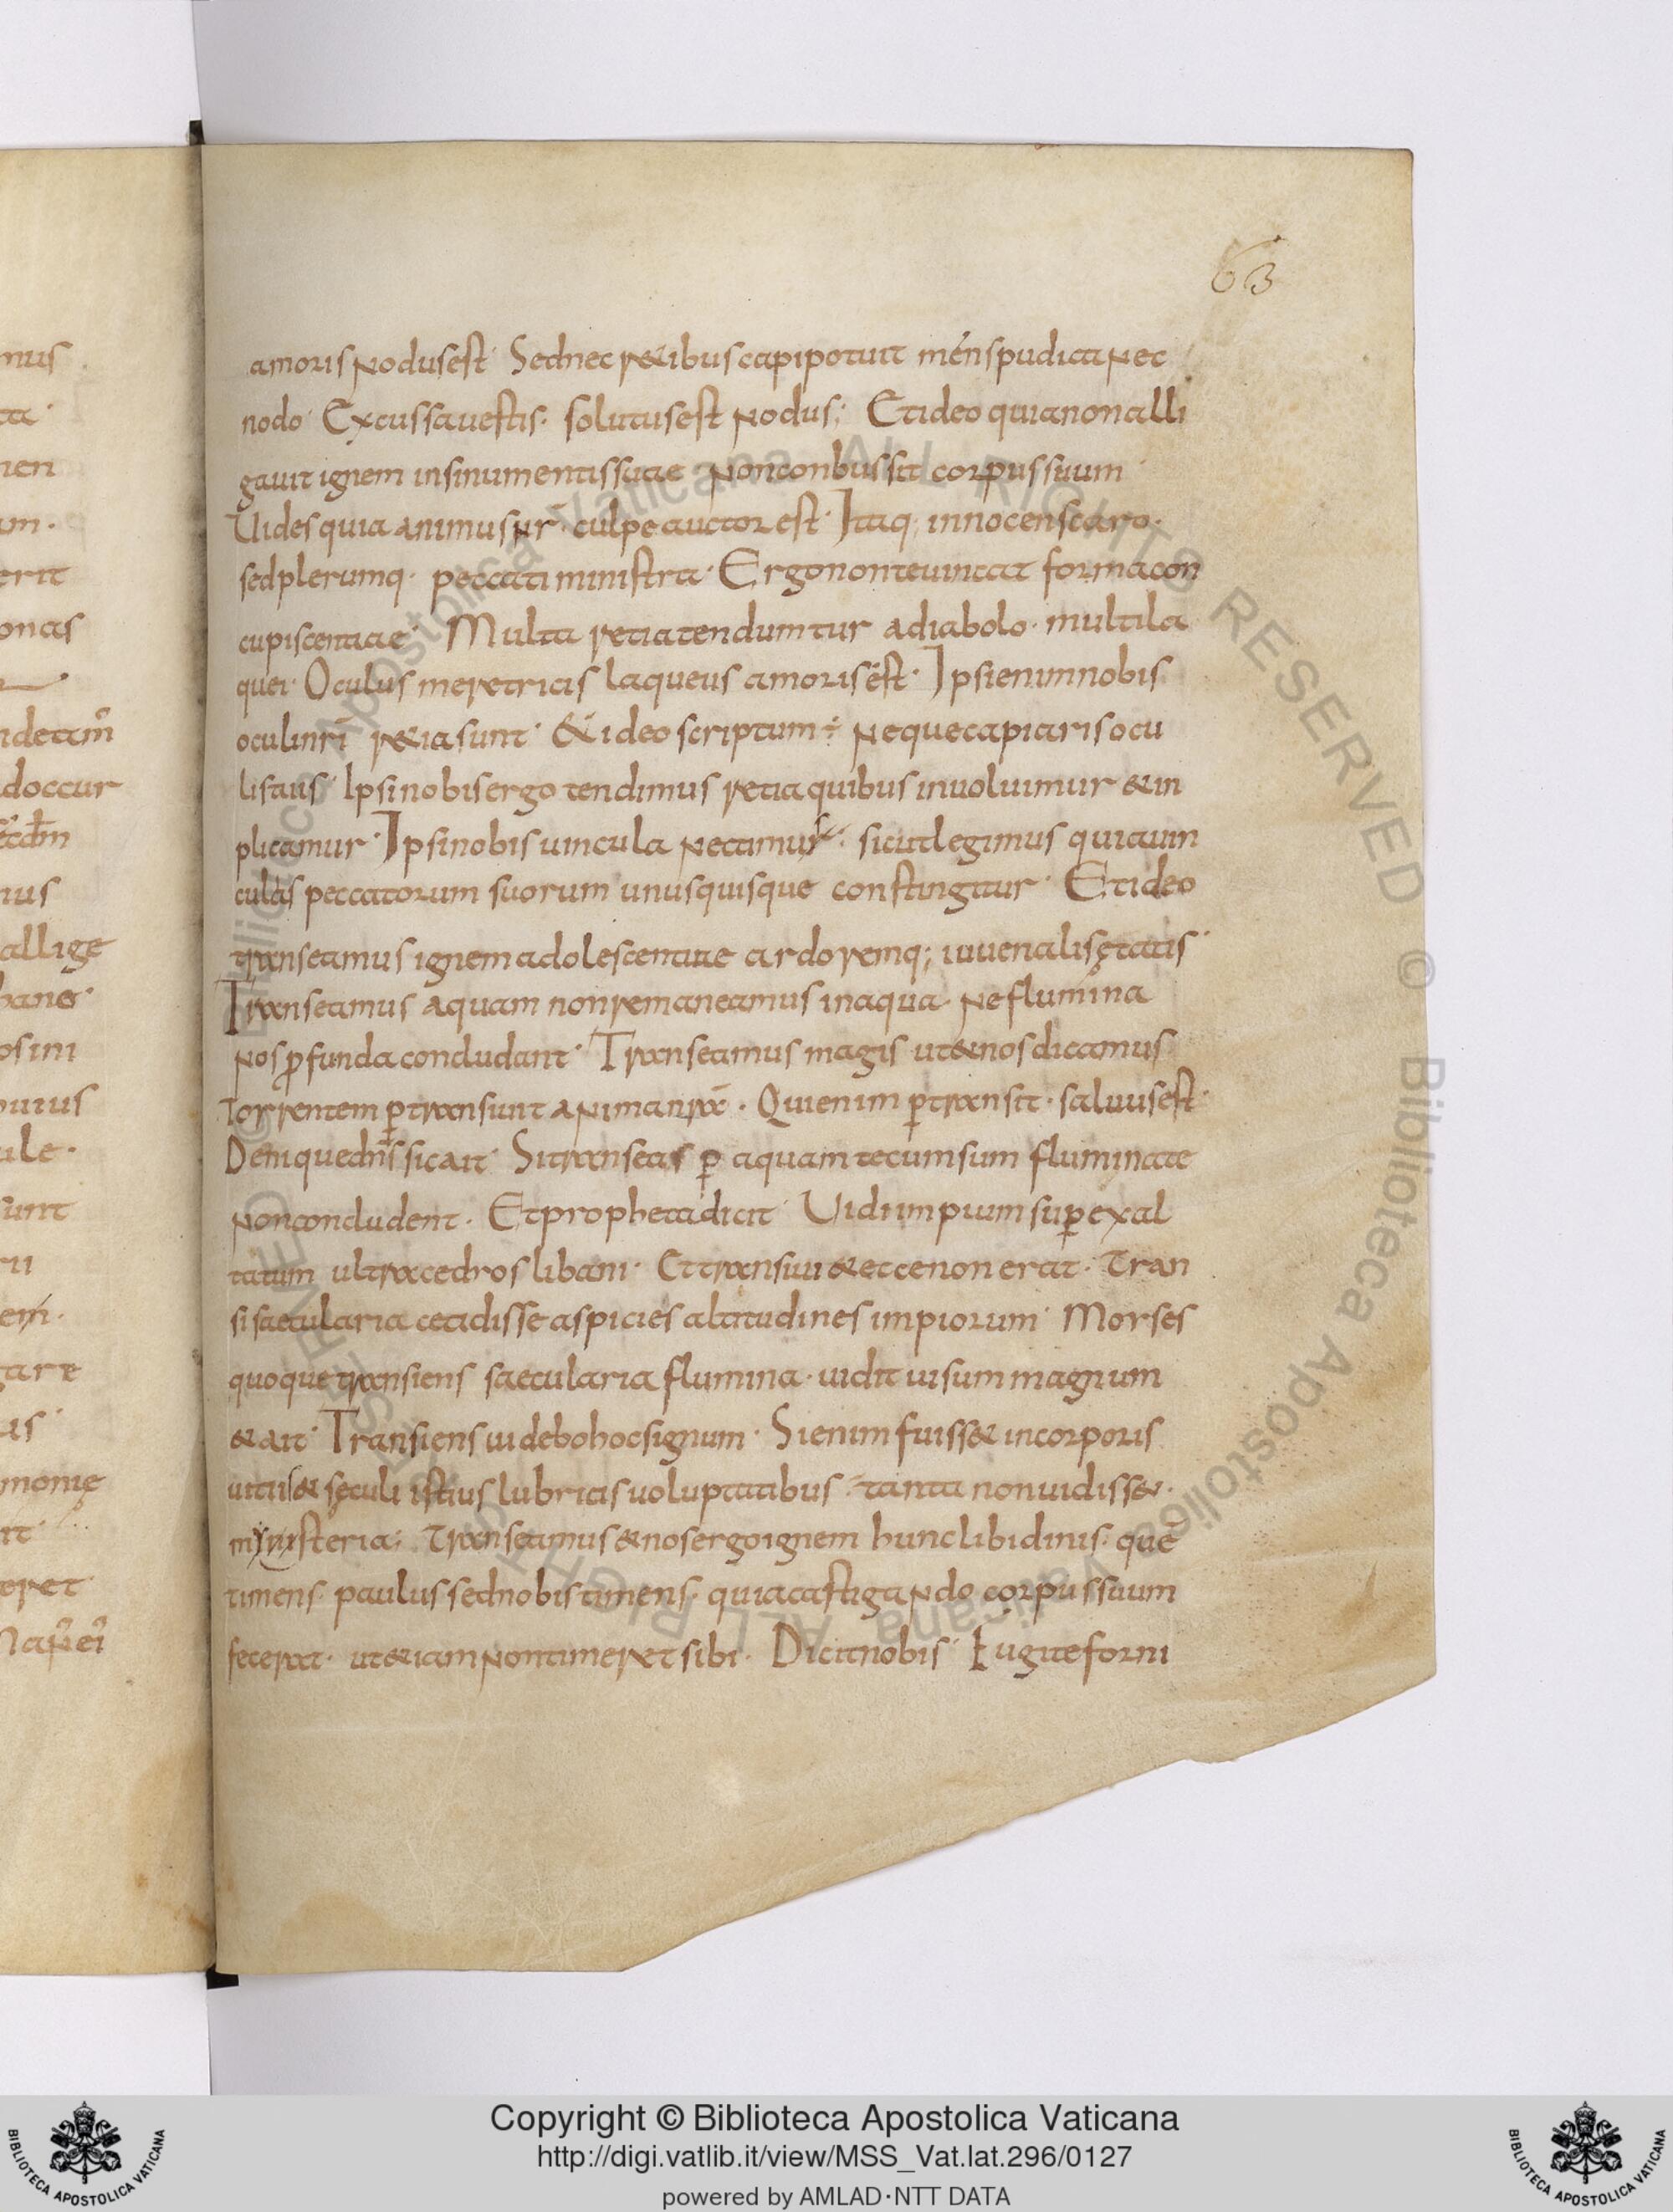 63
amoris nodus est· Sed nec retibus capi potuit mens pudica nec
nodo· Excussa uestis· solutus est nodus; Et ideo quia non alli
gauit ignem in sinu mentis suae non conbussit corpus suum·
Uides quia animus nr̄· culpe auctor est· Itaq; innocens caro·
sed plerumq· peccati ministra· Ergo non te uincat forma con
cupiscentiae· Multa retia tenduntur a diabolo· multi la
quei· Oculus meretricis laqueus amoris est· Ipsi enim nobis
oculi nr̄i retia sunt· & ideo scriptum ÷ neque capiaris ocu
lis tuis· Ipsi nobis ergo tendimus retia quibus inuoluimur & in
plicamur· Ipsi nobis uincula nectimus· sicut legimus quia uin
culis peccatorum suorum unusquisque constingitur· Et ideo
transeamus ignem adolescentiae ardoremq; iuuenalis ętatis·
Transeamus aquam non remaneamus in aqua· ne flumina
nos ꝓfunda concludant· Transeamus magis ut & nos dicamus
Torrentem ꝑtransiuit anima nr̄a· Qui enim ꝑtransit· saluus est·
Denique dn̄s sic ait· Si transeas ꝑ aquam tecum sum flumina te
non concludent· Et propheta dicit· Uidi impium suꝑexal
tatum ultra cedros libani· Et transiui & ecce non erat· Tran
si saecularia cecidisse aspicies altitudines impiorum· Moyses
quoque transiens saecularia flumina· uidit uisum magnum
& ait· Transiens uidebo hoc signum· Si enim fuiss& in corporis
uitiis & sęculi istius lubricis uoluptatibus· tanta non uidiss&·
mysteria; Transeamus & nos ergo ignem hunc libidinis· quē
timens· paulus sed nobis timens· quia castigando corpus suum
fecerat· ut &iam non timeret sibi· Dicit nobis· Fugite forni
Copyright © Biblioteca Apostolica Vaticana
http://digi.vatlib.it/view/MSS_Vat.lat.296/0127
powered by AMLAD·NTT DATA